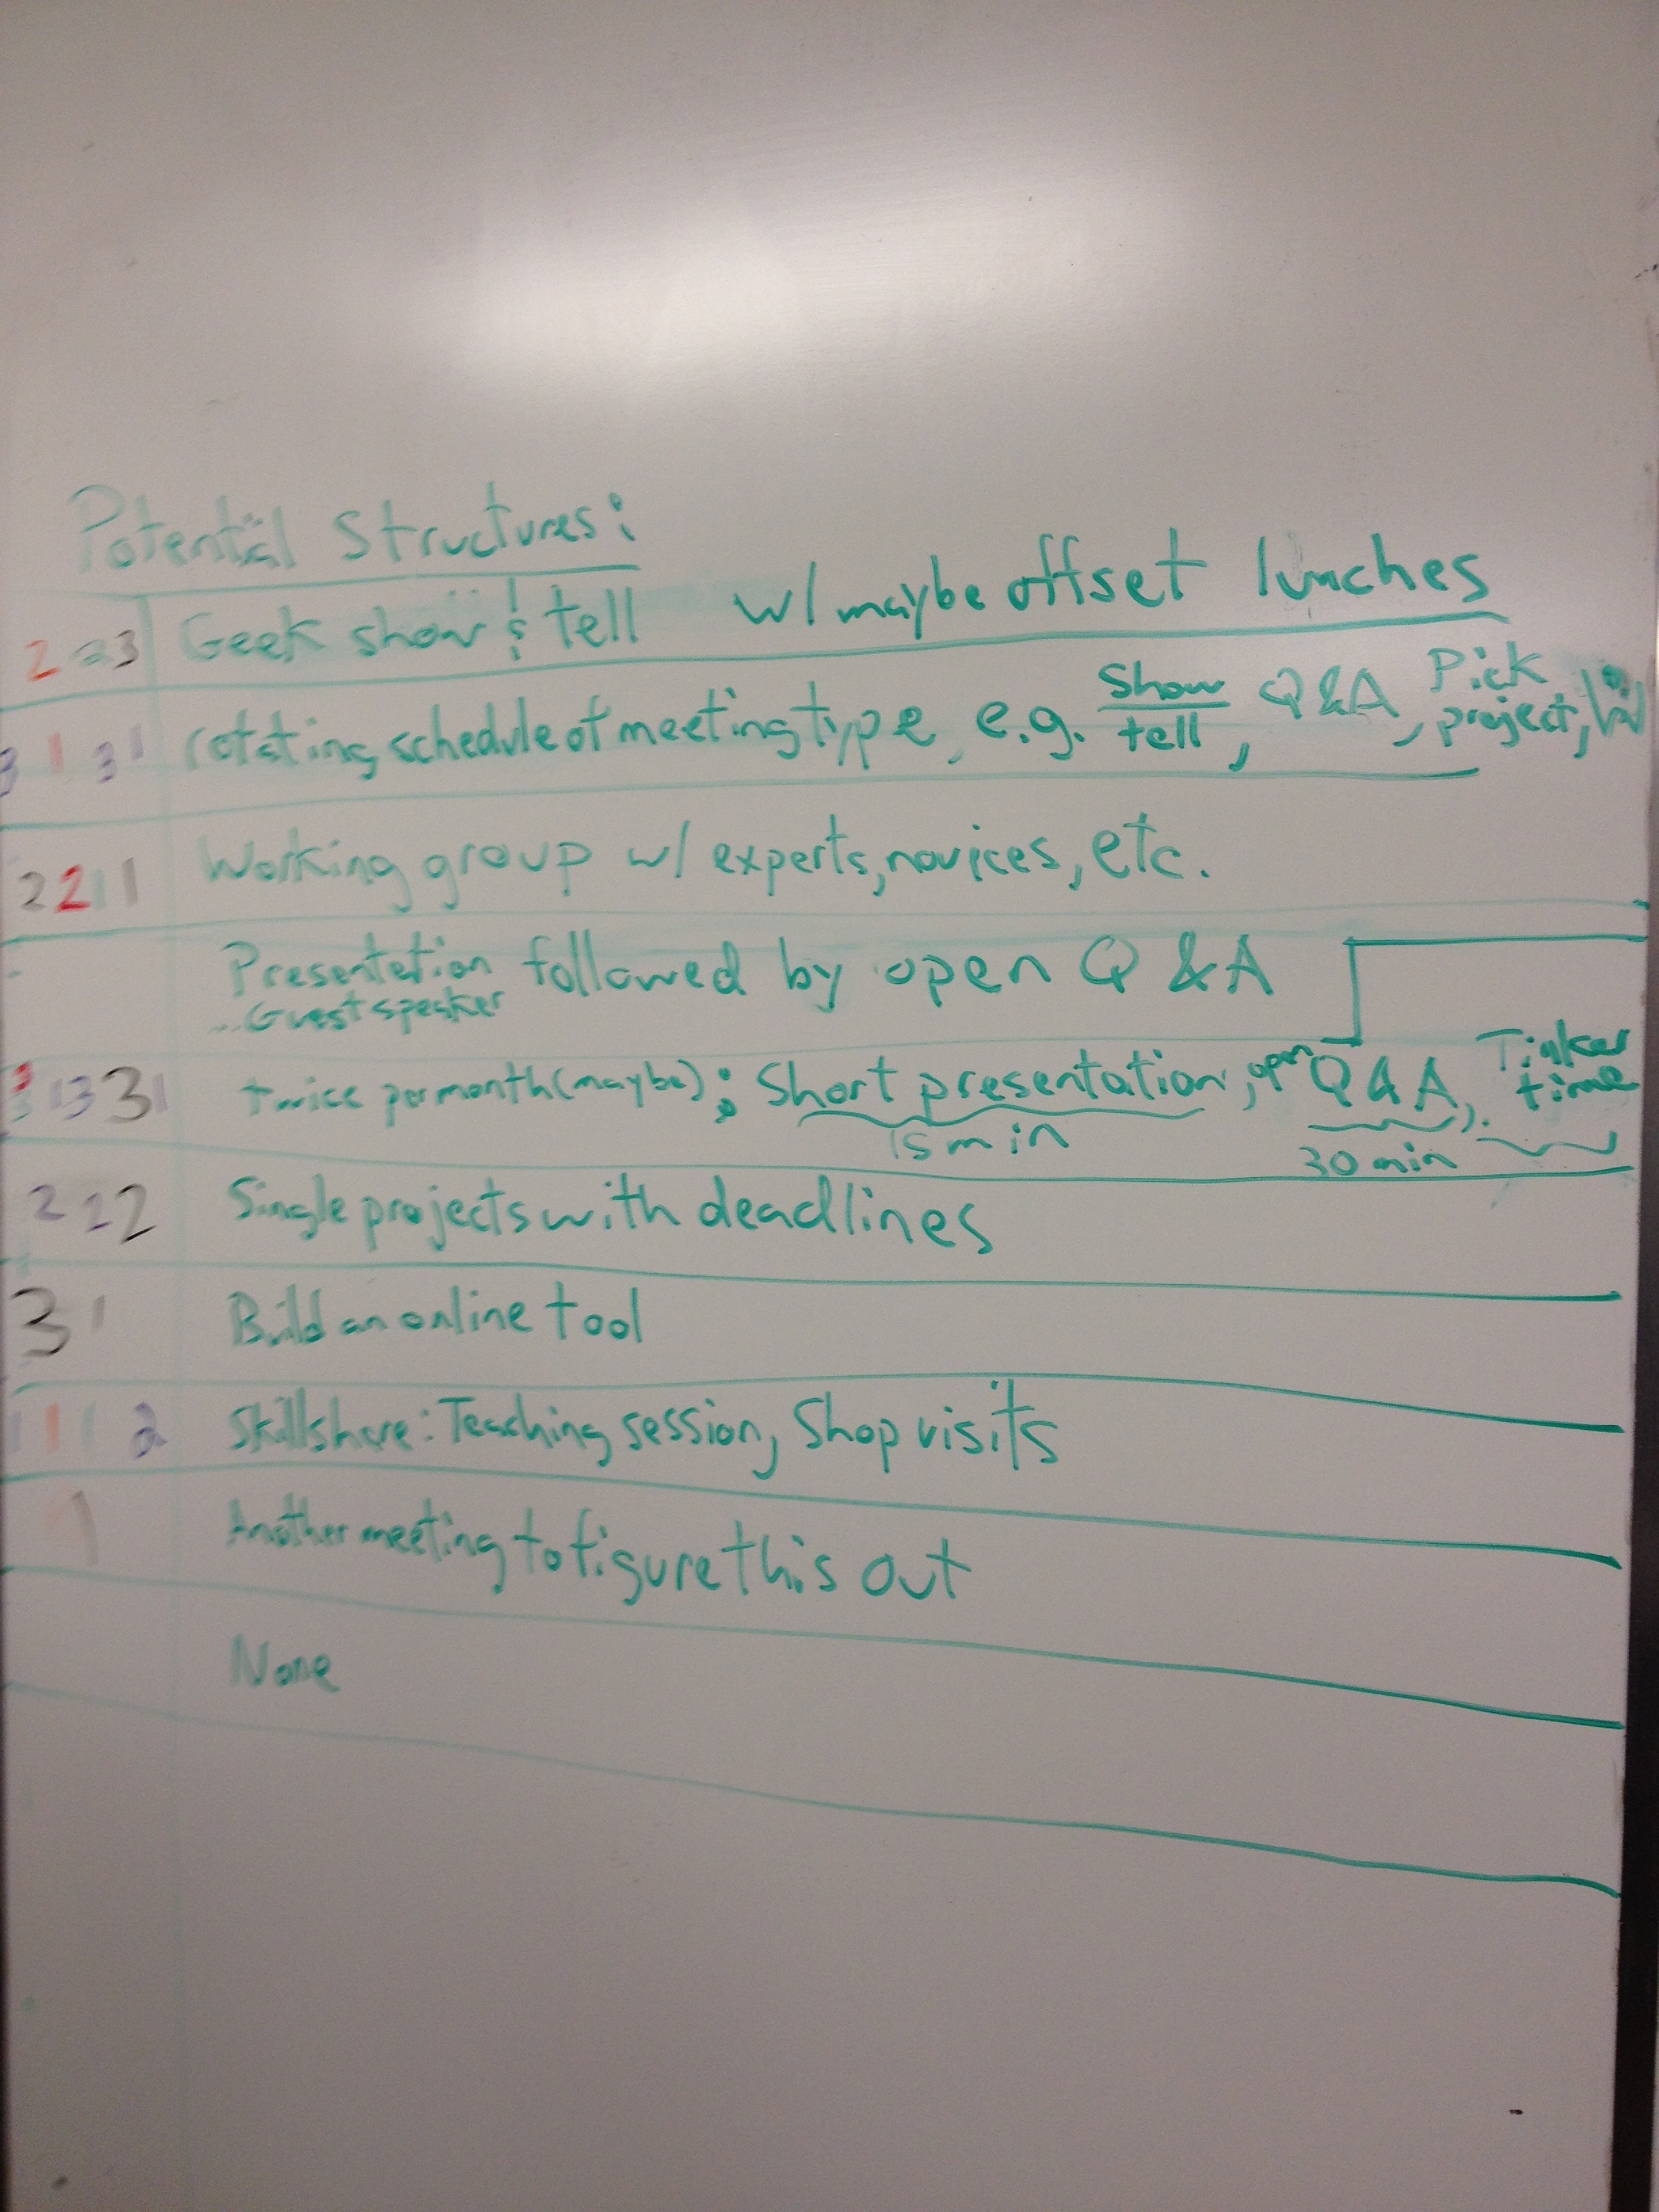 Potential Structures:
2 2 3 Geek show & tell w/ maybe offset lunches
3 1 3 1 rotating schedule of meeting type, e.g. Show/tell, Q&A, Pick project,
2 2 1 1 Working group w/ experts, novices, etc.
Presentation followed by open Q & A
...Guest speaker
3 3 1 3 3 1 twice per month (maybe): Short presentation, open Q & A, Tinker time
15 min 30 min
2 2 2 Single projects with deadlines
3 1 Build an online tool
1 1 1 2 Skillshare: Teaching session, Shop visits
1 Another meeting to figure this out
None